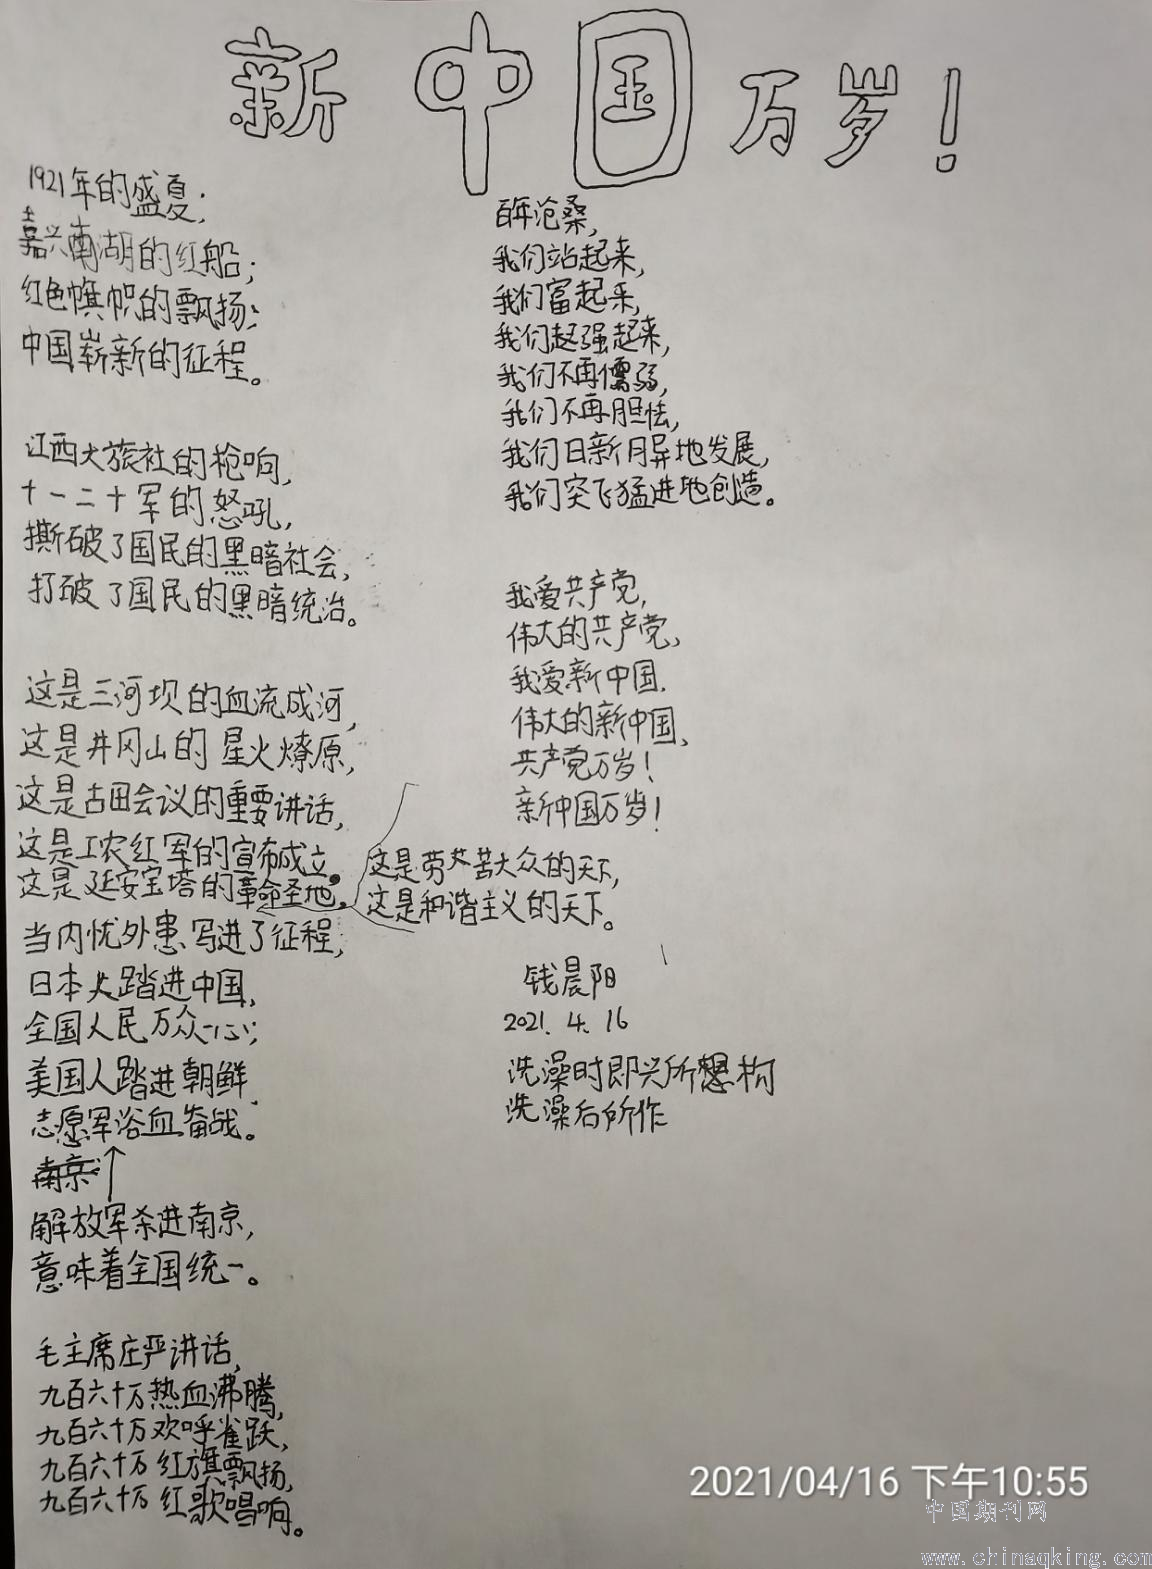 新中国万岁！
1921年的盛夏；
嘉兴南湖的红船；
红色旗帜的飘扬；
中国崭新的征程。
江西大旅社的枪响，
十一二十军的怒吼，
撕破了国民的黑暗社会，
打破了国民的黑暗统治。
这是三河坝的血流成河，
这是井冈山的星火燎原，
这是古田会议的重要讲话，
这是工农红军的宣布成立。
这是延安宝塔的革命圣地。
这是劳苦大众的天下，
这是和谐主义的天下。
当内忧外患写进了征程，
日本人踏进中国，
全国人民万众一心；
美国人踏进朝鲜，
志愿军浴血奋战。
南京
解放军杀进南京，
意味着全国统一。
毛主席庄严讲话，
九百六十万热血沸腾，
九百六十万欢呼雀跃，
九百六十万红旗飘扬，
九百六十万红歌唱响。
百年沧桑，
我们站起来，
我们富起来，
我们强起来，
我们不再懦弱，
我们不再胆怯，
我们日新月异地发展，
我们突飞猛进地创造。
我爱共产党，
伟大的共产党，
我爱新中国.
伟大的新中国、
共产党万岁！
新中国万岁！
钱晨阳
2021.4.16
洗澡时即兴所想构
洗澡后所作
2021/04/16 下午10:55
中国期刊网
www.chinaqking.com